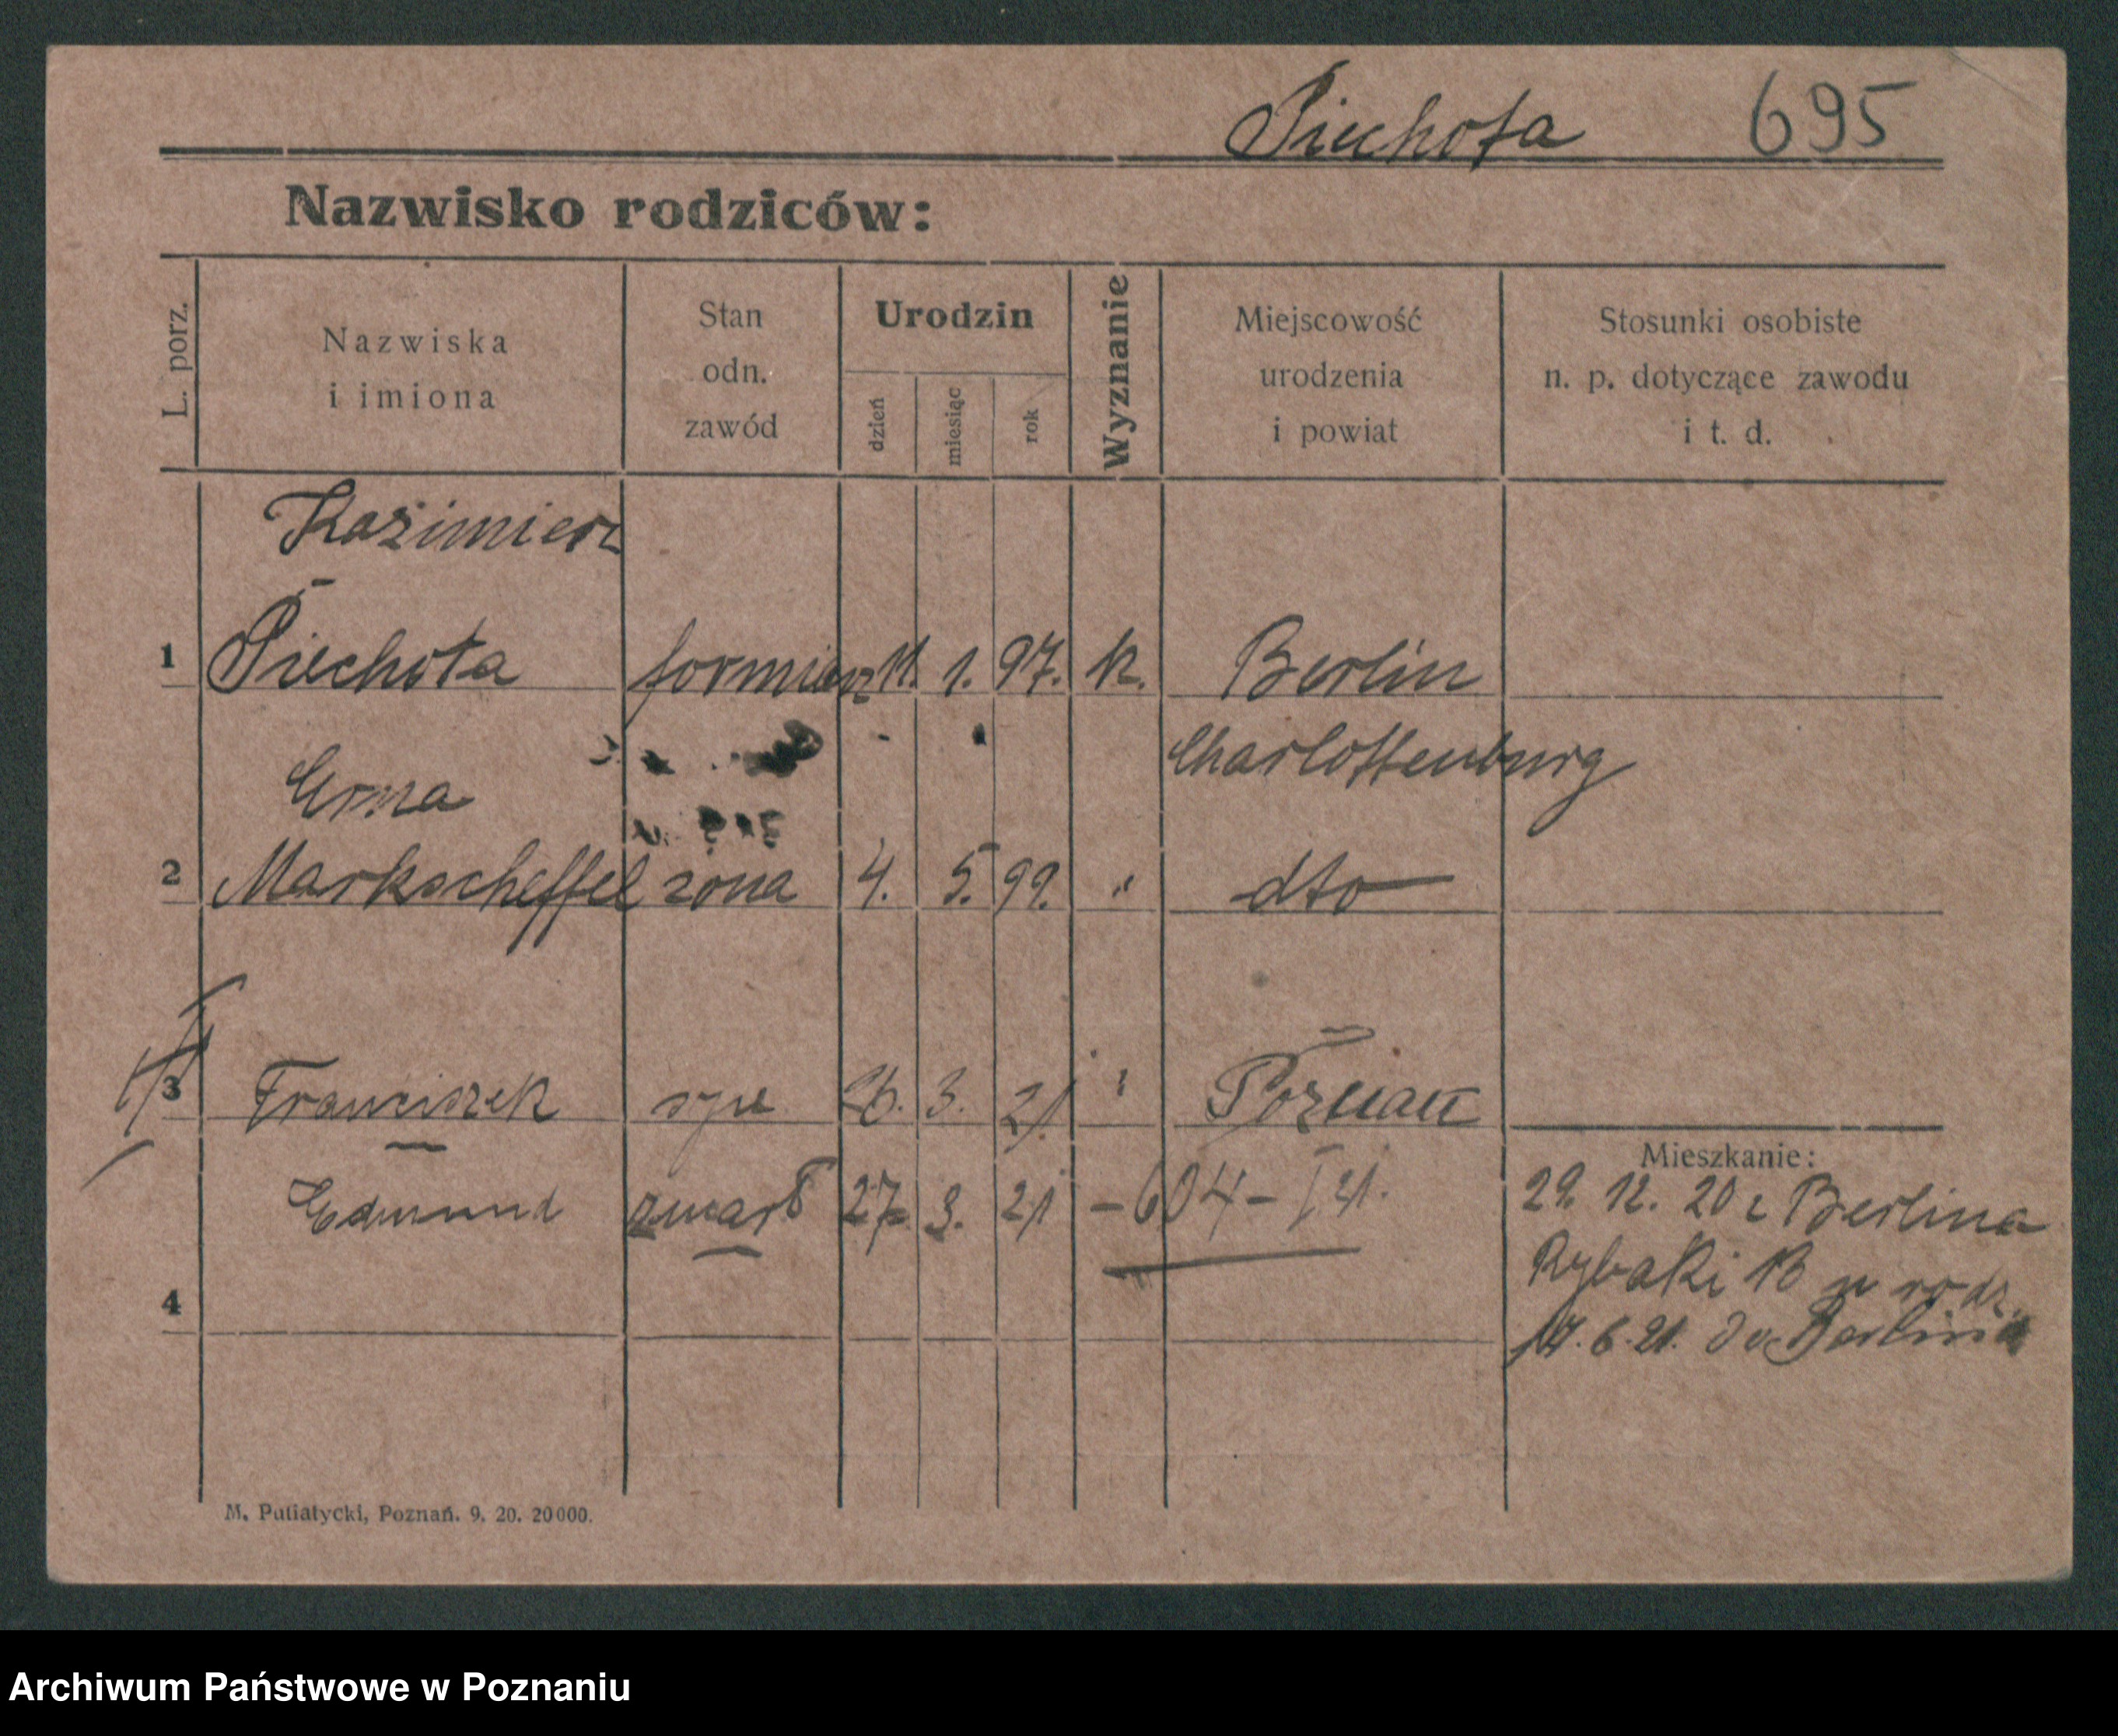 Piechota 695
Nazwisko rodziców:
L. porz.
Nazwiska
i imiona
Stan
odn.
zawód
Urodzin
dzień
miesiąc
rok
Wyznanie
Miejscowość
urodzenia
i powiat
Stosunki osobiste
n. p. dotyczące zawodu
i t. d.
Kazimierz
1 Piechota formierz 11. 1. 97. k. Berlin
Charlottenburg
Erna
2 Markscheffel zona 4. 5. 99. " dto
3 Franciszek syn 26. 3. 21 " Poznań
Mieszkanie:
Edmund zmarł 27. 3. 21 – 604 – I 21.
29. 12. 20 z Berlina
Rybaki 13 u rodz.
4
17. 6. 21. do Berlina
M. Putiatycki, Poznań. 9. 20. 20000.
Archiwum Państwowe w Poznaniu